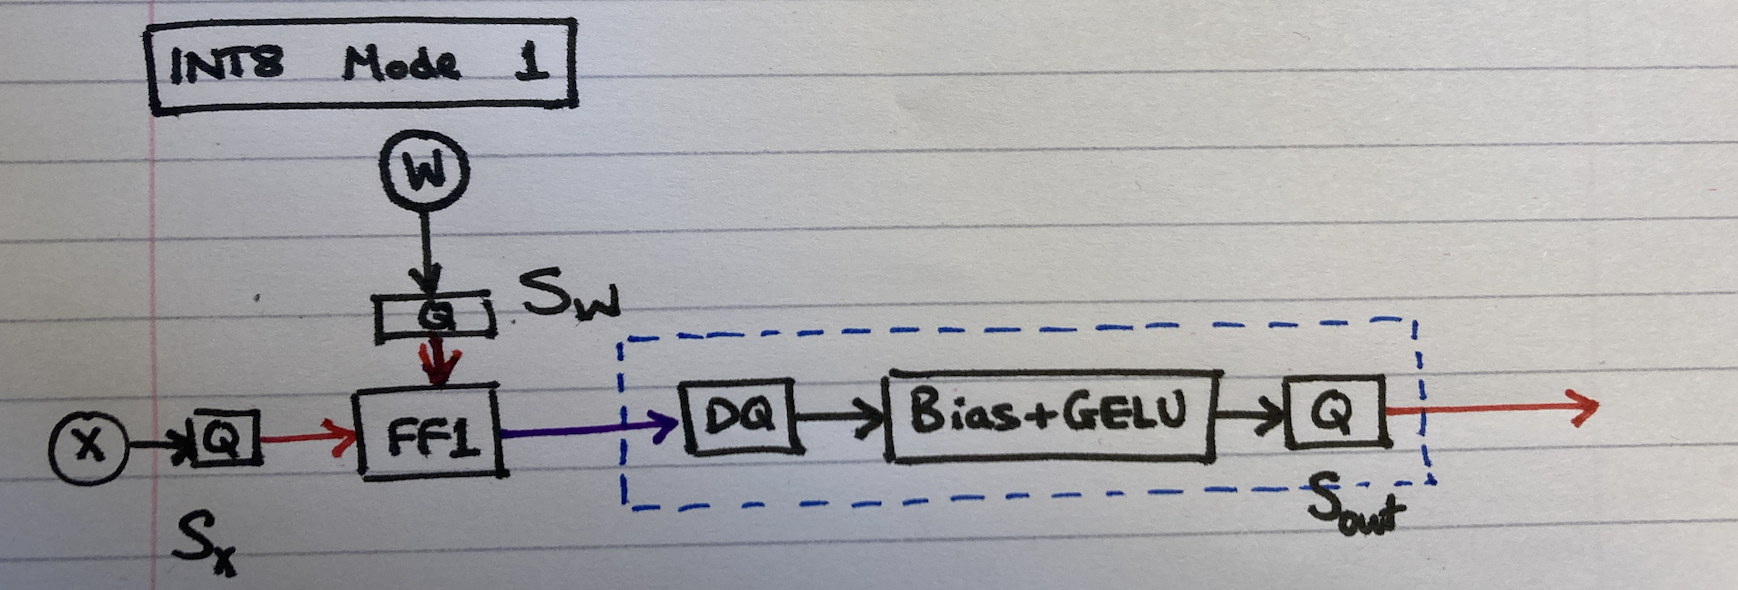 INT8 Mode 1
W
Q
Sw
X
Q
FF1
DQ
Bias+GELU
Q
Sx
Sout